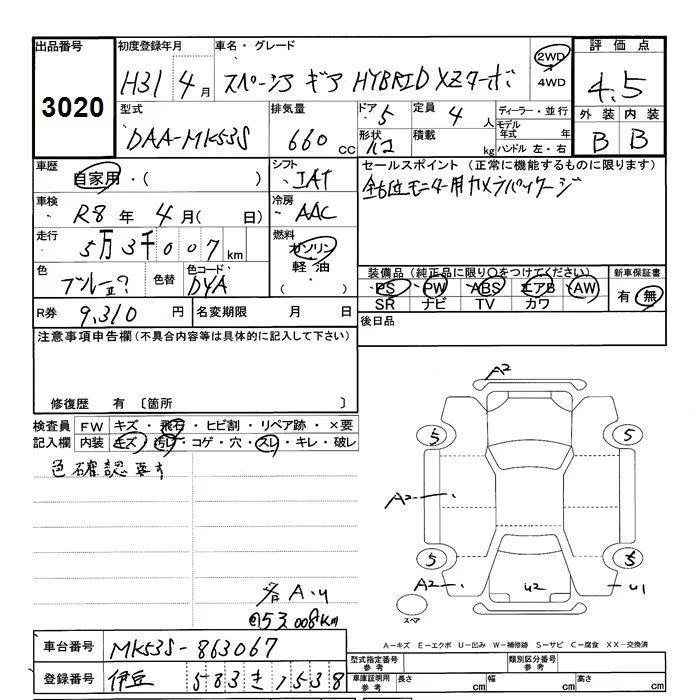 出品番号 初度登録年月 車名・グレード 評価点
3020 H31 4月 スペーシア ギア HYBRID XZターボ 2WD 4WD 4.5
型式 排気量 ドア 5 定員 4 人 ディーラー・並行 外装 内装
DAA-MK53S 660 cc 形状 積載 kg モデル年式 年 ハンドル 左・右 B B
車歴 シフト セールスポイント（正常に機能するものに限ります）
自家用・( ) IAT 全方位モニター用カメラパッケージ
車検 冷房
R8年 4月( 日) AAC
走行 燃料
5万3千007km ガソリン
軽油
色 色替 色コード 装備品（純正品に限り○をつけてください） 新車保証書
DYA PS PW ABS エアB AW 有 無
SR ナビ TV カワ
R券 9,310 円 名変期限 月 日 後日品
注意事項申告欄(不具合内容等は具体的に記入して下さい)
修復歴 有 〔箇所 〕
検査員 FW キズ・飛石・ヒビ割・リペア跡・×要
記入欄 内装 キズ・汚レ・コゲ・穴・スレ・キレ・破レ
色確認要す
A2
5 5
A2
5 5
A2 U2 U1
スペア
各A.U
53,008KM
A－キズ E－エクボ U－凹み W－補修跡 S－サビ C－腐食 XX－交換済
車台番号 MK53S-863067
型式指定番号 参考 類別区分番号 参考
登録番号 伊豆 583 き 1538
車庫証明用 参考 長さ cm 幅 cm 高さ cm